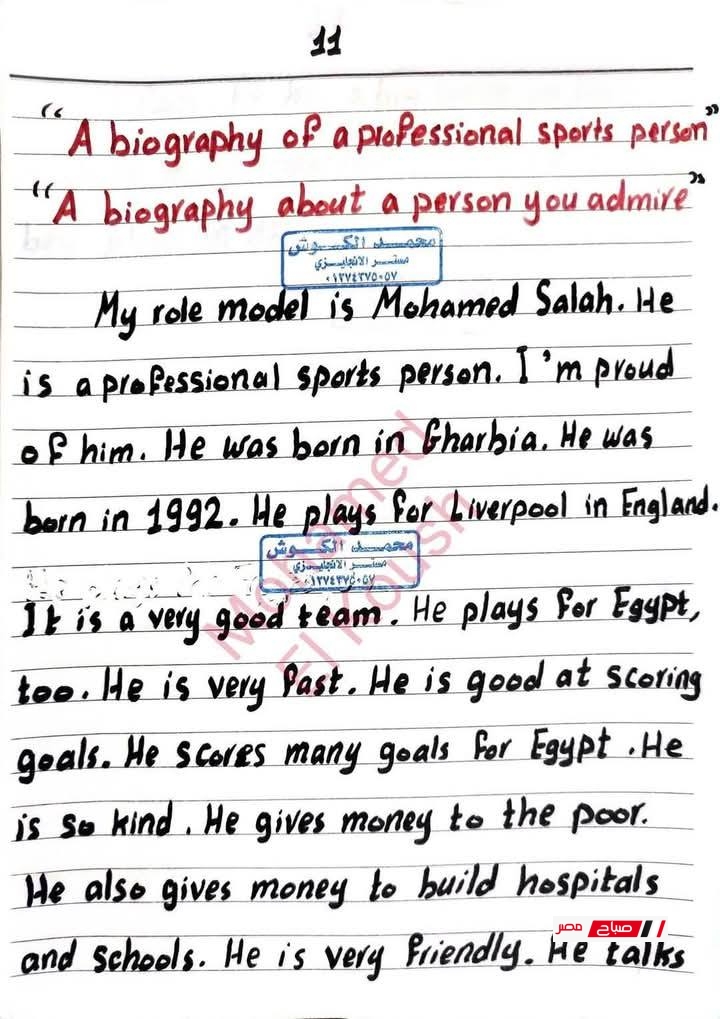 11
“A biography of a professional sports person”
“A biography about a person you admire”
محمد الكوش
مستر الانجليزي
٠١٢٧٤٢٧٥٠٥٧
My role model is Mohamed Salah. He
is a professional sports person. I'm proud
of him. He was born in Gharbia. He was
born in 1992. He plays for Liverpool in England.
محمد الكوش
مستر الانجليزي
Mohamed
El Koush
It is a very good team. He plays for Egypt,
too. He is very fast. He is good at scoring
goals. He scores many goals for Egypt. He
is so kind. He gives money to the poor.
He also gives money to build hospitals
and schools. He is very friendly. He talks
صباح مصر